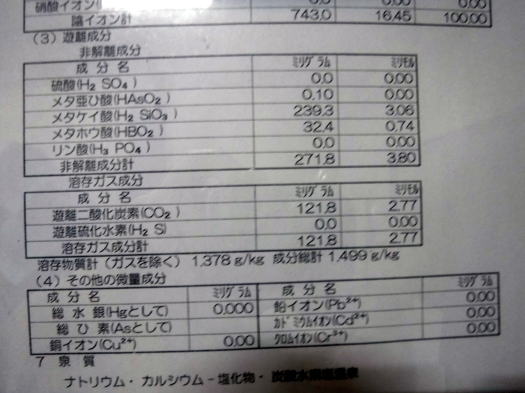 硝酸イオン(
陰イオン計 743.0 16.45 100.00
(3) 遊離成分
非解離成分
成 分 名 ミリグラム ミリモル
硫酸(H₂ SO₄ ) 0.0 0.00
メタ亜ひ酸(HAsO₂ ) 0.10 0.00
メタケイ酸(H₂ SiO₃ ) 239.3 3.06
メタホウ酸(HBO₂ ) 32.4 0.74
リン酸(H₃ PO₄ ) 0.0 0.00
非解離成分計 271.8 3.80
溶存ガス成分
成 分 名 ミリグラム ミリモル
遊離二酸化炭素(CO₂ ) 121.8 2.77
遊離硫化水素(H₂ S) 0.0 0.00
溶存ガス成分計 121.8 2.77
溶存物質計 (ガスを除く) 1.378 g/kg 成分総計 1.499 g/kg
(4) その他の微量成分
成 分 名 ミリグラム 成 分 名 ミリグラム
総 水 銀(Hgとして) 0.000 鉛イオン(Pb²⁺) 0.00
総 ひ 素(Asとして) カドミウムイオン(Cd²⁺) 0.00
銅イオン(Cu²⁺) 0.00 クロムイオン(Cr³⁺) 0.00
7 泉 質
ナトリウム・ カルシウム - 塩化物・ 炭酸水素塩温泉